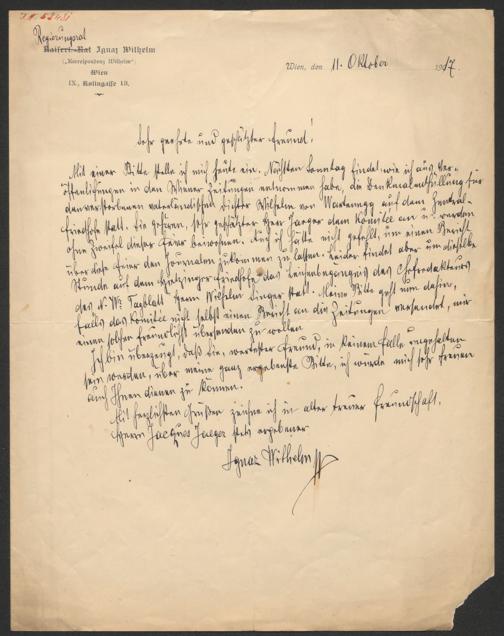 Regierungsrat
Kaiserl. Rat Ignaz Wilhelm
(„Korrespondenz Wilhelm“)
Wien
IX., Kolingasse 19.
Wien, den 11. Oktober 1917.
Sehr geehrter und geschätzter Freund!
Mit einer Bitte stelle ich mich heute ein. Nächsten Sonntag findet, wie ich aus Ver-
öffentlichungen in den Wiener Zeitungen entnommen habe, die Denkmalenthüllung für
den verstorbenen vaterländischen Dichter Wilhelm von Wartenegg auf dem Zentral-
friedhofe statt. Sie gehören, sehr geschätzter Herr Jaeger dem Komitee an u. werden
ohne Zweifel dieser Feier beiwohnen. Auch ich hätte nicht gefehlt, um einen Bericht
über diese Feier den Journalen zukommen zu lassen. Leider findet aber um dieselbe
Stunde auf dem Hietzinger Friedhofe das Leichenbegängnis des Chefredakteurs
des N. Wr. Tagblatt Herrn Wilhelm Singer statt. Meine Bitte geht nun dahin,
falls das Komitee nicht selbst einen Bericht an die Zeitungen versendet, mir
einen solchen freundlichst übersenden zu wollen.
Ich bin überzeugt, daß Sie, wertester Freund, in keinem Falle ungehalten
sein werden, über meine ganz ergebenste Bitte, ich würde mich sehr freuen
auch Ihnen dienen zu können.
Mit herzlichsten Grüßen zeichne ich in alter treuer Freundschaft.
Herrn Jacques Jaeger stets ergebener
Ignaz Wilhelm